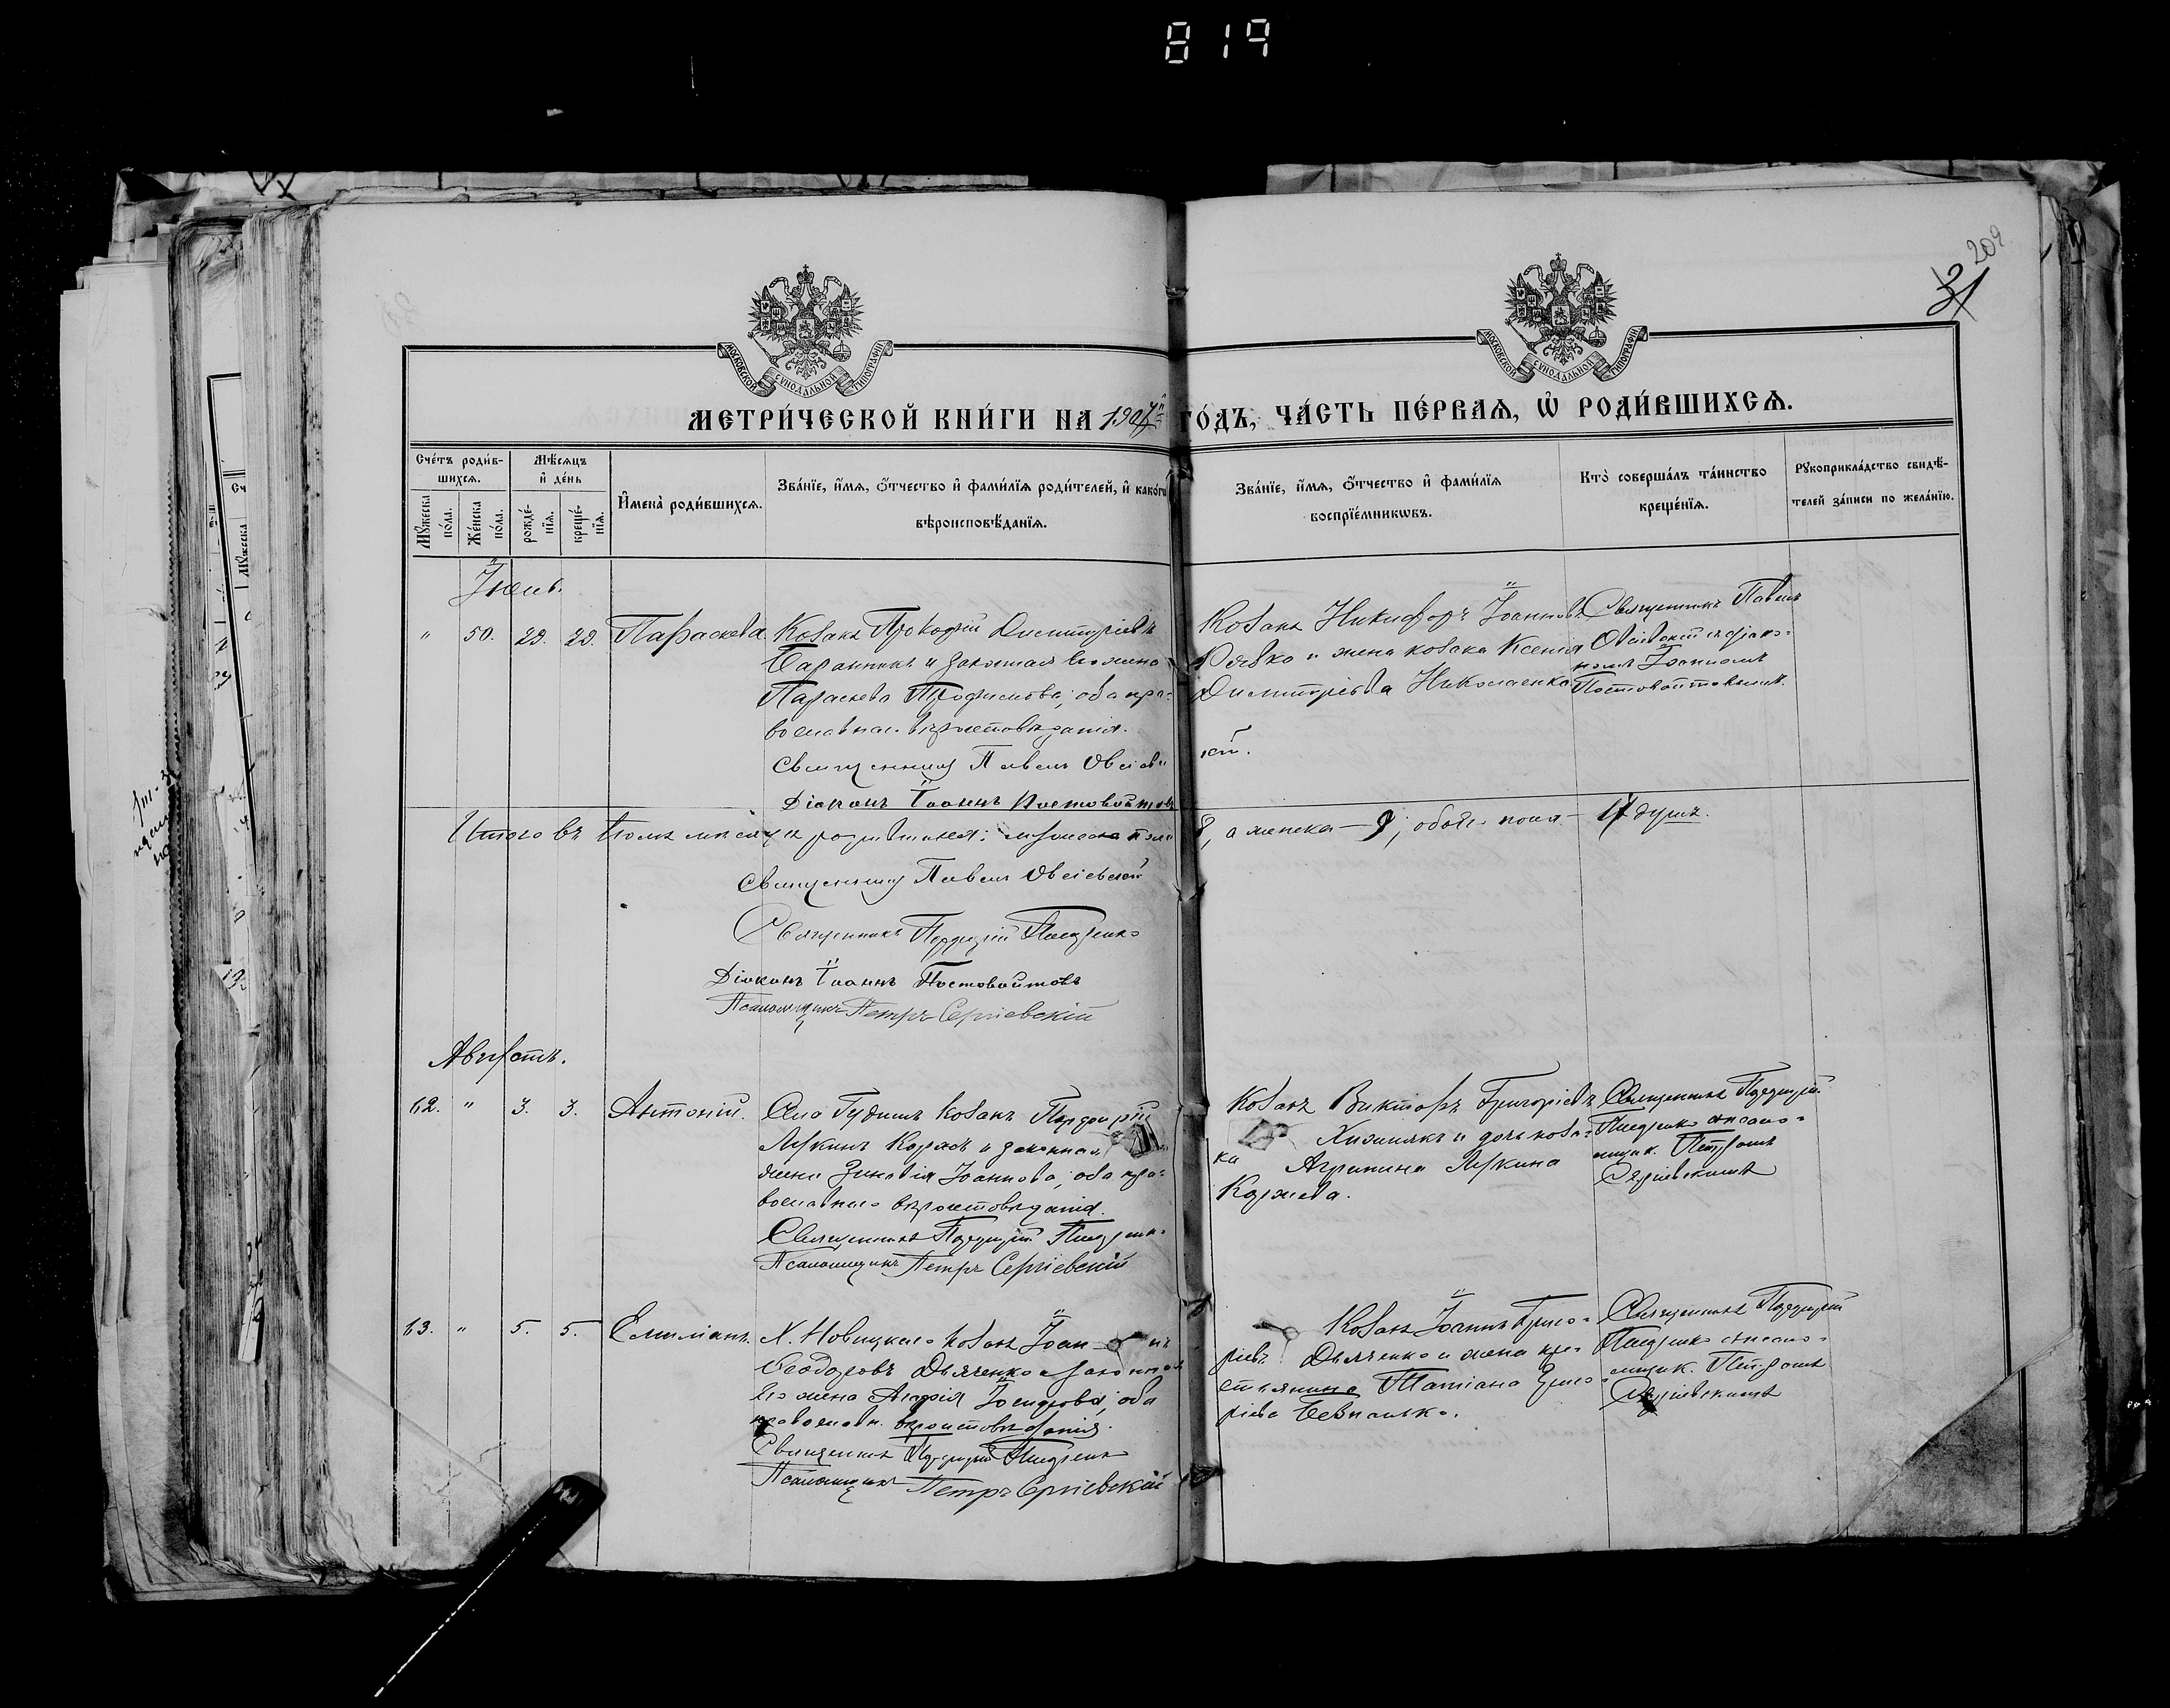 819
209
31
МОСКОВСКОЙ СѴНОДАЛЬНОЙ ТИПОГРАФІИ
МОСКОВСКОЙ СѴНОДАЛЬНОЙ ТИПОГРАФІИ
МЕТРИ́ЧЕСКОЙ КНИ́ГИ НА 1907й ГО́ДЪ, ЧА́СТЬ ПЕ́РВАѦ, Ѡ҆ РОДИ́ВШИХСѦ.
Сче́тъ роди́в-
шихсѧ.
Мѣ́сѧцъ
и҆ де́нь
Мꙋ́жеска по́ла.
Же́нска по́ла.
рожде́-
нїѧ.
креще́-
нїѧ.
И҆мена̀ роди́вшихсѧ.
Зва́нїе, и҆́мѧ, ѻ҆́тчество и҆ фами́лїѧ роди́телей, и҆ како́гѡ
вѣроисповѣ́данїѧ.
Зва́нїе, и҆́мѧ, ѻ҆́тчество и҆ фами́лїѧ
воспрїе́мникѡвъ.
Кто̀ соверша́лъ та́инство
креще́нїѧ.
Рꙋкоприкла́дство свидѣ́-
телей за́писи по жела́нїю.
" 50. 29. 29. Параскева
Козакъ Прокофій Димитріевъ
и законная его жена
Параскева Трофимова; оба пра-
вославнаго вѣроисповѣданія.
Священникъ Павелъ Овсіевскій.
Діаконъ Іоаннъ Постовойтовъ
Козакъ Никифоръ Іоанновъ
Рябко и жена козака Ксенія
Димитріева Николаенко
Священникъ Павелъ
Овсіевскій съ діако-
номъ Іоанномъ
Постовойтовымъ.
Итого въ Іюлѣ мѣсяцѣ родившихся: мужеска пола 8, а женска — 9; обоего пола — 17 душъ.
Священникъ Павелъ Овсіевскій
Священникъ Порфирій
Діаконъ Іоаннъ Постовойтовъ
Псаломщикъ Петръ Сергіевскій
Августъ.
12. " 3. 3. Антоній.
Села козакъ Порфирій
Лукинъ Коржъ и законная
жена Зиновія Іоаннова; оба пра-
вославнаго вѣроисповѣданія.
Священникъ Порфирій
Псаломщикъ Петръ Сергіевскій
Козакъ Викторъ Григоріевъ
Хижнякъ и дочь коза-
ка Агрипина Лукина
Коржева.
Священникъ Порфирій
съ псалом-
щик. Петромъ
Сергіевскимъ
13. " 5. 5. Емиліанъ.
Х. Новицкаго козакъ Іоаннъ
Ѳеодоровъ Дьяченко и законная
его жена Іосифова; оба
православн. вѣроисповѣданія.
Священникъ Порфирій
Псаломщикъ Петръ Сергіевскій
Козакъ Іоаннъ Григо-
ріевъ Дьяченко и жена кре-
стьянина Татіана Григо-
ріева
Священникъ Порфирій
съ псалом-
щик. Петромъ
Сергіевскимъ